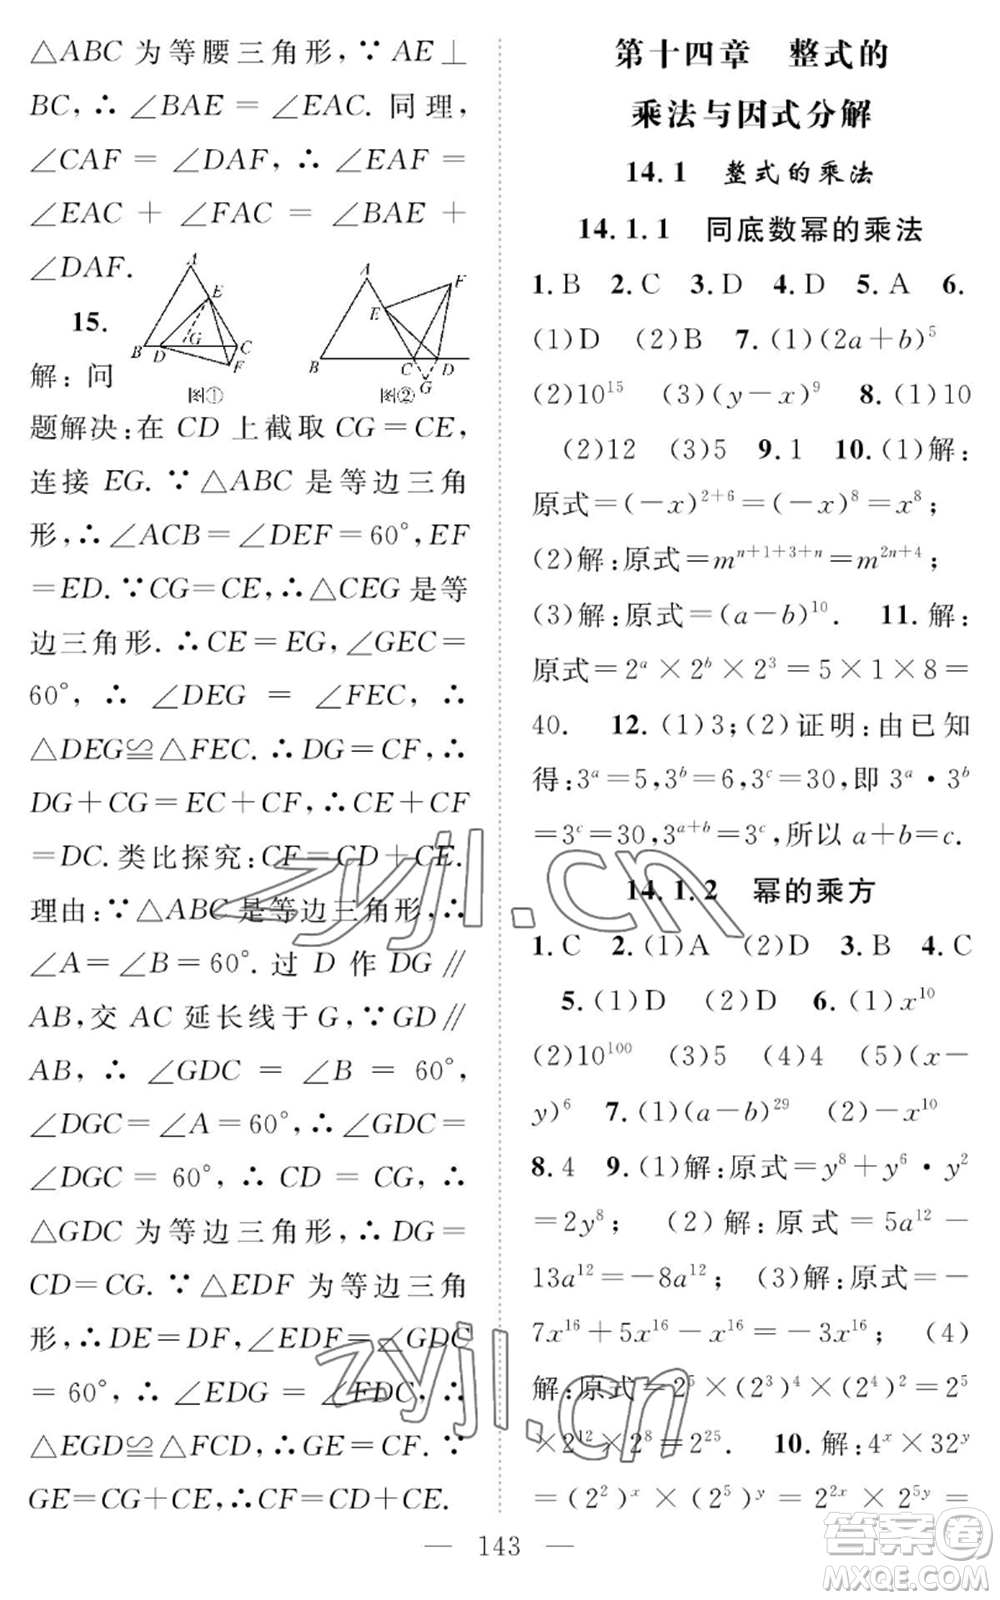 △ABC 为等腰三角形,∵AE⊥
BC,∴∠BAE=∠EAC. 同理,
∠CAF=∠DAF,∴∠EAF=
∠EAC+∠FAC=∠BAE+
∠DAF.
A
E
B D G C
F
图①
A
F
E
B C D
G
图②
15.
解:问
题解决:在 CD 上截取 CG=CE,
连接 EG. ∵△ABC 是等边三角
形,∴∠ACB=∠DEF=60°,EF
=ED. ∵CG=CE,∴△CEG 是等
边三角形. ∴CE=EG,∠GEC=
60°,∴∠DEG=∠FEC,∴
△DEG≌△FEC. ∴DG=CF,∴
DG+CG=EC+CF,∴CE+CF
=DC. 类比探究:CF=CD+CE.
理由:∵△ABC是等边三角形,∴
∠A=∠B=60°. 过 D 作 DG∥
AB,交 AC 延长线于 G,∵GD∥
AB,∴∠GDC=∠B=60°,
∠DGC=∠A=60°,∴∠GDC=
∠DGC=60°,∴CD=CG,∴
△GDC 为等边三角形,∴DG=
CD=CG. ∵△EDF 为等边三角
形,∴DE=DF,∠EDF=∠GDC
=60°,∴∠EDG=∠EDC,∴
△EGD≌△FCD,∴GE=CF. ∵
GE=CG+CE,∴CF=CD+CE.
第十四章 整式的
乘法与因式分解
14.1 整式的乘法
14.1.1 同底数幂的乘法
1.B 2.C 3.D 4.D 5.A 6.
(1)D (2)B 7.(1)(2a+b)⁵
(2)10¹⁵ (3)(y-x)⁹ 8.(1)10
(2)12 (3)5 9.1 10.(1)解:
原式=(-x)²⁺⁶=(-x)⁸=x⁸;
(2)解:原式=mⁿ⁺¹⁺³⁺ⁿ=m²ⁿ⁺⁴;
(3)解:原式=(a-b)¹⁰. 11.解:
原式=2ᵃ×2ᵇ×2³=5×1×8=
40. 12.(1)3;(2)证明:由已知
得:3ᵃ=5,3ᵇ=6,3ᶜ=30,即 3ᵃ·3ᵇ
=3ᶜ=30,3ᵃ⁺ᵇ=3ᶜ,所以 a+b=c.
14.1.2 幂的乘方
1.C 2.(1)A (2)D 3.B 4.C
5.(1)D (2)D 6.(1)x¹⁰
(2)10¹⁰⁰ (3)5 (4)4 (5)(x-
y)⁶ 7.(1)(a-b)²⁹ (2)-x¹⁰
8.4 9.(1)解:原式=y⁸+y⁶·y²
=2y⁸; (2)解:原式=5a¹²-
13a¹²=-8a¹²; (3)解:原式=-
7x¹⁶+5x¹⁶-x¹⁶=-3x¹⁶; (4)
解:原式=2⁵×(2³)⁴×(2⁴)²=2⁵
×2¹²×2⁸=2²⁵. 10.解:4ˣ×32ʸ
=(2²)ˣ×(2⁵)ʸ=2²ˣ×2⁵ʸ=
— 143 —
zyjl.cn
zyjl.cn
答案圈
MXQE.COM